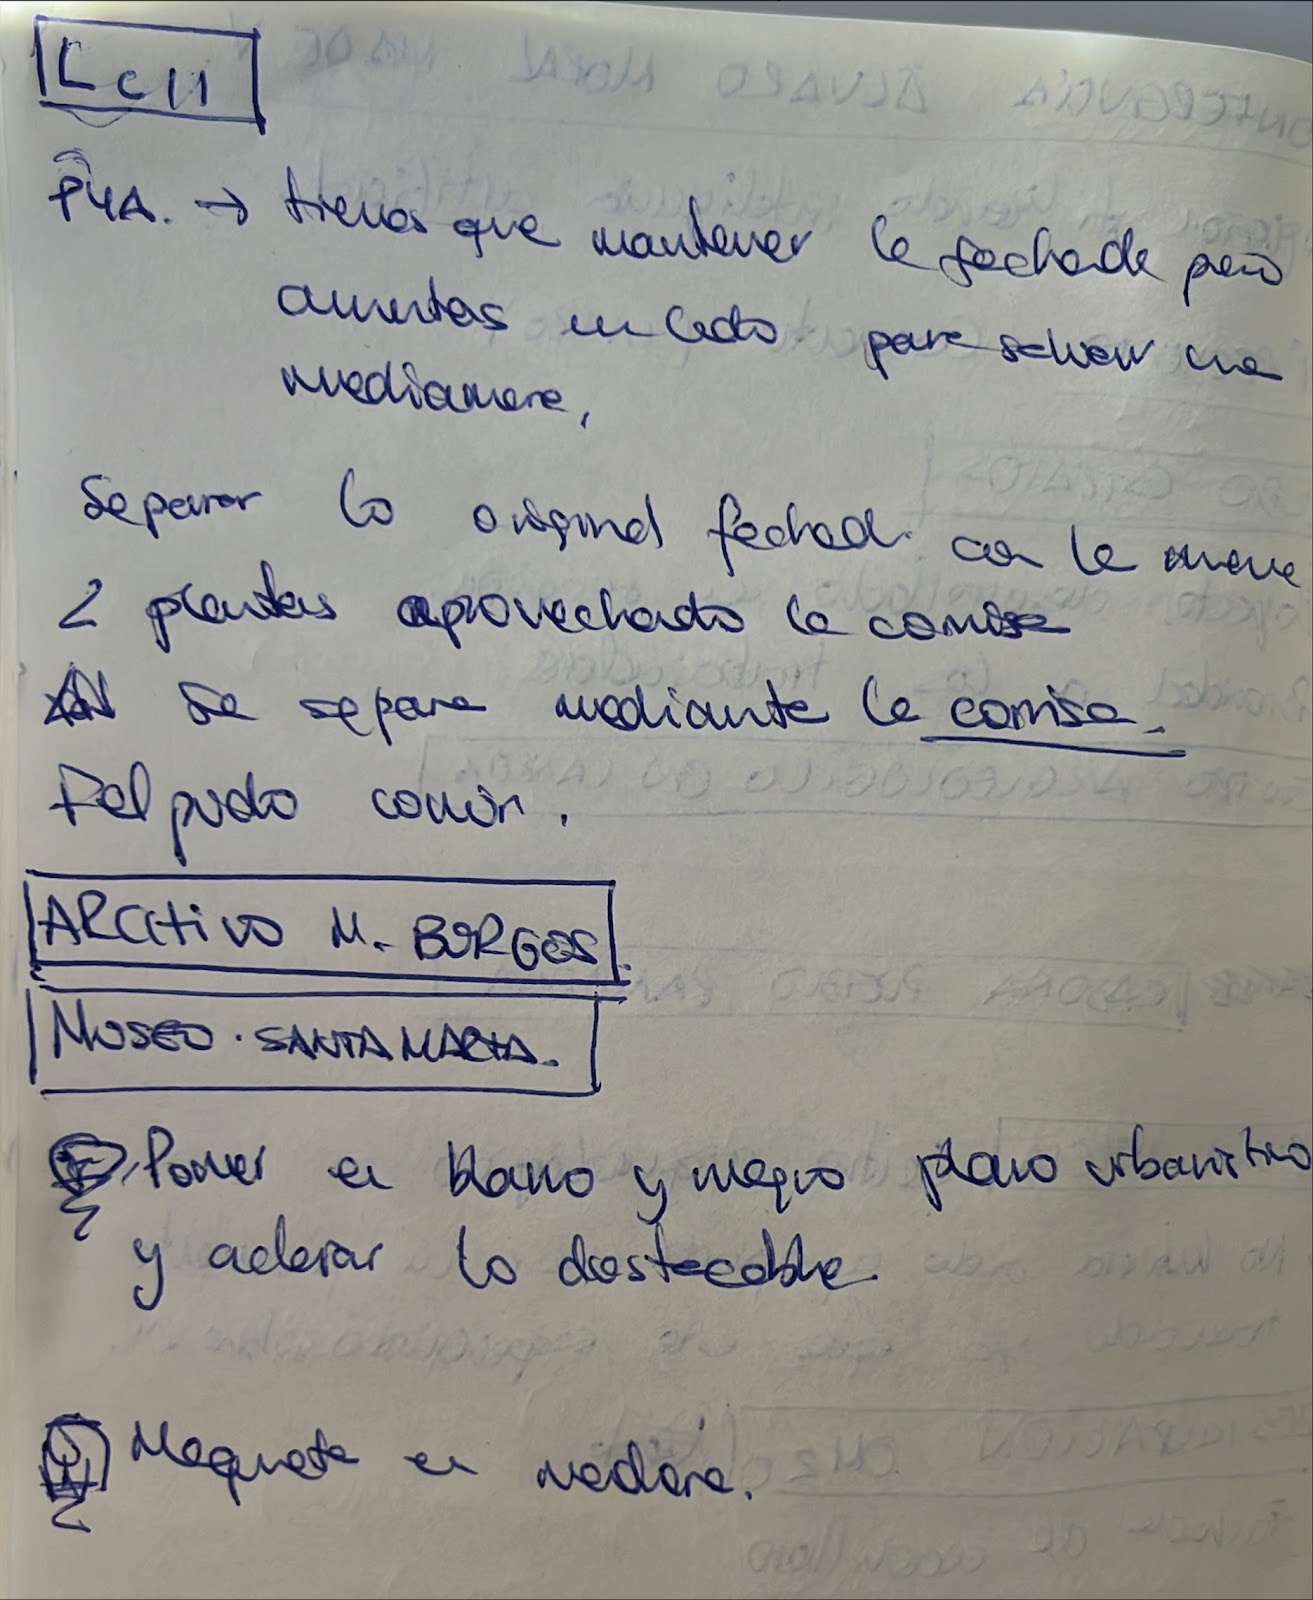 LC11
P4A. → tienes que mantener la fachada pero
aumentas un lado para salvar una
medianera,
Separar lo original fachad. con la nueva
2 plantas aprovechado la cornisa
Se separa mediante la cornisa.
común.
ARCHIVO M. BURGOS.
MUSEO. SANTA MARIA.
Poner en blanco y negro plano urbanistico
y aclarar lo destacable.
Maqueta en madera.